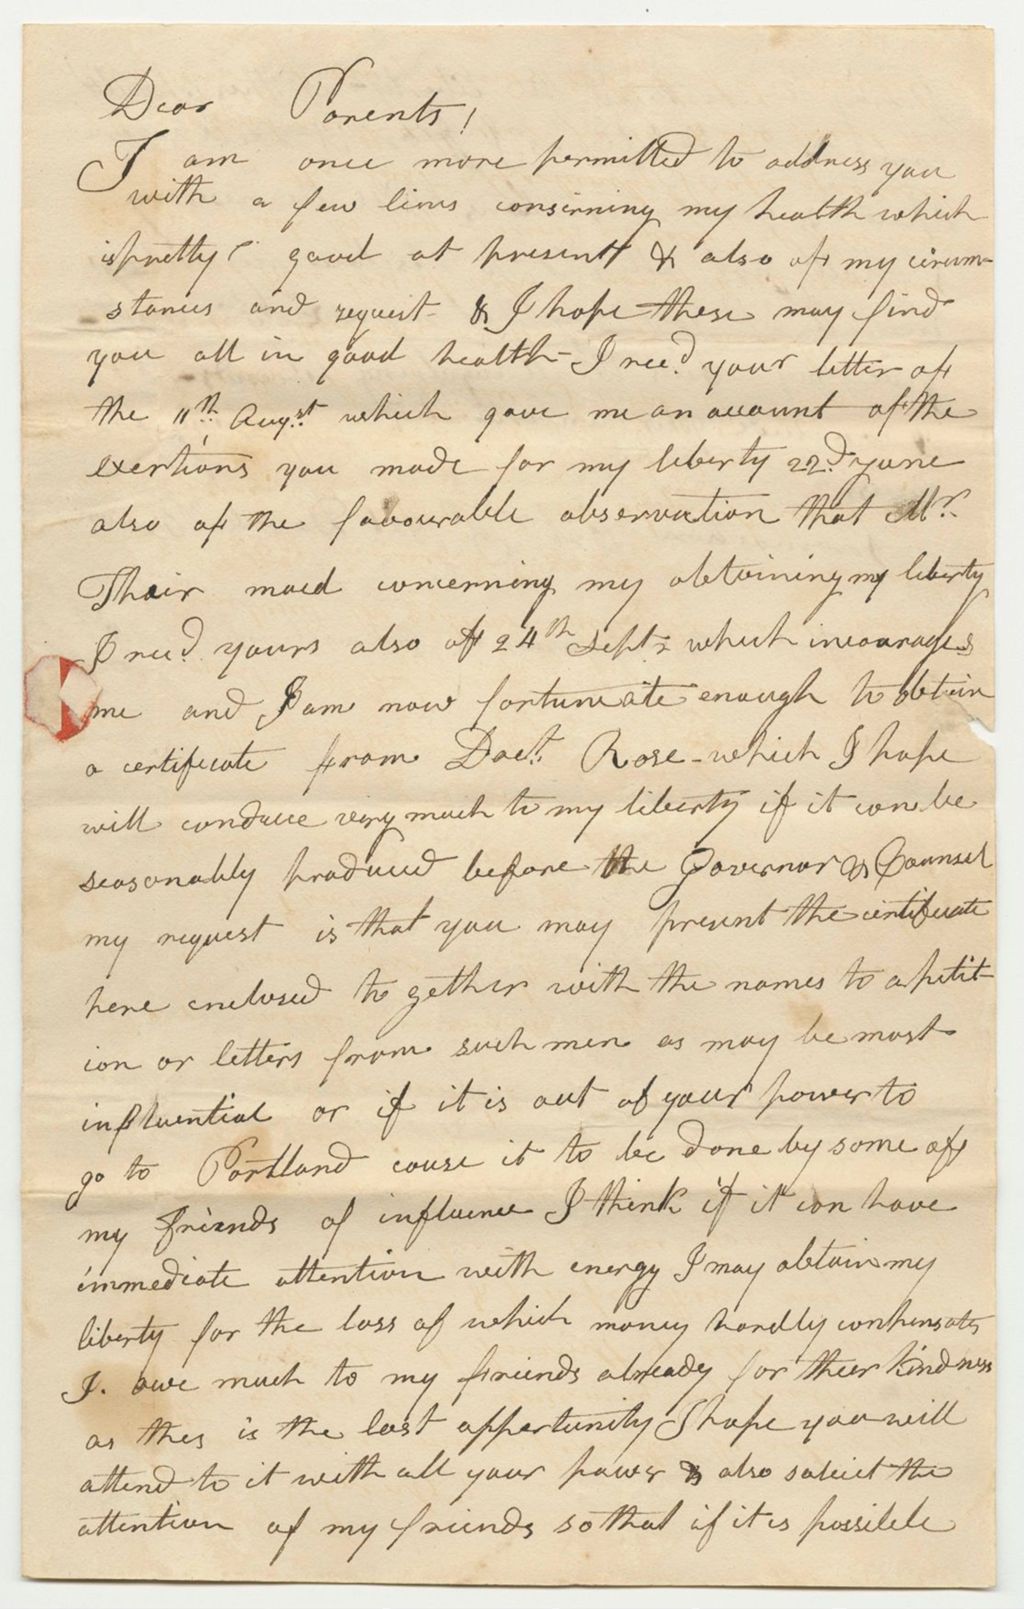 Dear Parents!
I am once more permitted to address you
with a few lines consirning my health which
is pretty good at present & also of my circum-
stances and request & I hope these may find
you all in good health - I recd. your letter of
the 11th. Augst. which gave me an account of the
exertions you made for my liberty 22d. June
also of the favourable observation that Mr.
Thair maed concerning my obtaining my liberty
I recd. yours also of 24th Sept. which incourages
me and I am now fortuneate enough to obtain
a certificate from Doct. Rose - which I hope
will conduce very much to my liberty if it can be
seasonably produced before the Governor & Counsel
my request is that you may present the certificate
here enclosed to gether with the names to a petit-
ion or letters from such men as may be most
influential or if it is out of your power to
go to Portland cause it to be done by some of
my friends of influence I think if it can have
immediate attention with energy I may obtain my
liberty for the loss of which money hardly compensates
I. owe much to my friends already for their kindness
as this is the last oppertunity I hope you will
attend to it with all your power & also solicit the
attention of my friends so that if it is possible